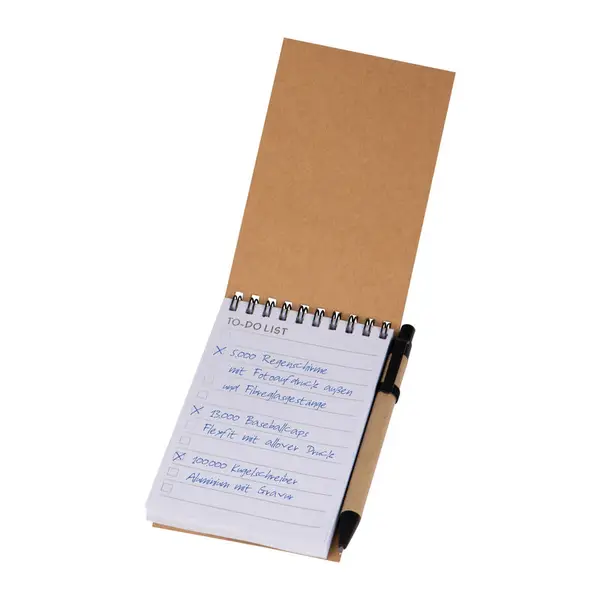 TO-DO LIST
× 5.000 Regenschirme
mit Fotoaufdruck außen
und Fibreglasgestänge
× 13.000 Baseballcaps
Flexfit mit allover Druck
× 100.000 Kugelschreiber
Aluminium mit Gravur